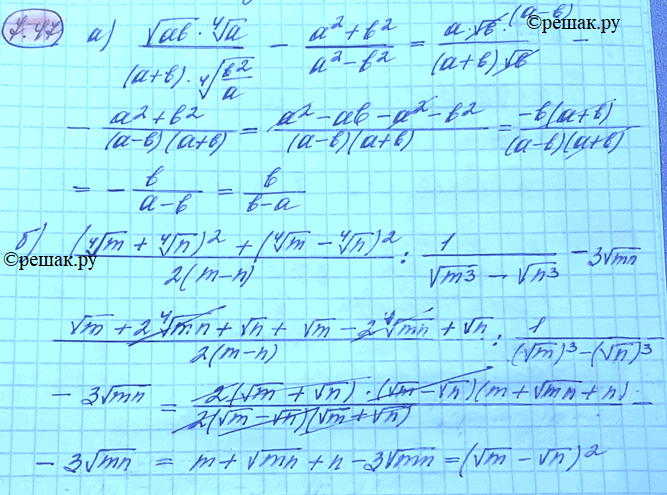 7.47 а) (√ab · ⁴√a)/((a+b) · ⁴√(b²/a)) − (a²+b²)/(a²−b²) = (a·√b·(a−b))/((a+b)√b) −
©решак.ру
− (a²+b²)/((a−b)(a+b)) = (a²−ab−a²−b²)/((a−b)(a+b)) = (−b(a+b))/((a−b)(a+b))
= − b/(a−b) = b/(b−a)
б) ((⁴√m + ⁴√n)² + (⁴√m − ⁴√n)²)/(2(m−n)) : 1/(√m³ − √n³) − 3√mn
©решак.ру
©решак.ру
(√m + 2⁴√mn + √n + √m − 2⁴√mn + √n)/(2(m−n)) : 1/((√m)³−(√n)³)
− 3√mn = (2(√m + √n)·(√m−√n)(m+√mn+n))/(2(√m−√n)(√m+√n)) −
− 3√mn = m+√mn+n−3√mn=(√m−√n)²